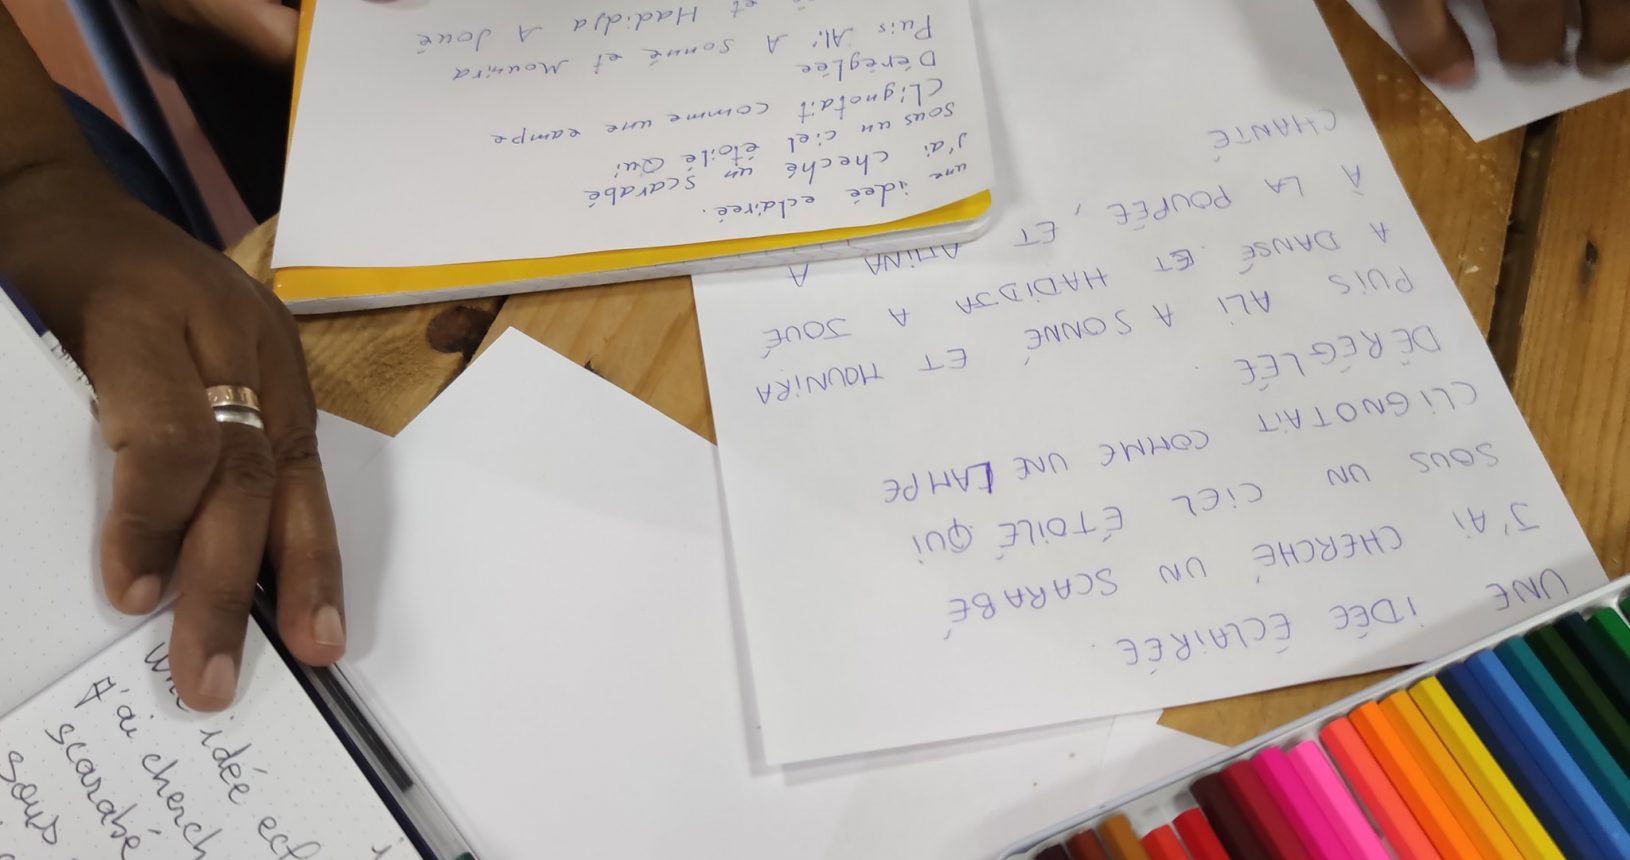 UNE IDÉE ÉCLAIRÉE.
J'AI CHERCHÉ UN SCARABÉ
SOUS UN CIEL ÉTOILÉ QUI
CLIGNOTAIT COMME UNE LAMPE
DÉRÉGLÉE.
PUIS ALI A SONNÉ ET MOUNIRA
A DANSÉ ET HADIDJA A JOUÉ
À LA POUPÉE, ET AMINA A
CHANTÉ
une ideé eclaireé.
J'ai cheché un scarabé
sous un ciel étoilé Qui
CLignotait comme une eampe
Déréglée
Puis Ali A sonné et Mounira
et Hadidja A Joué
une idée ecl
J'ai cherch
scarabé
sous